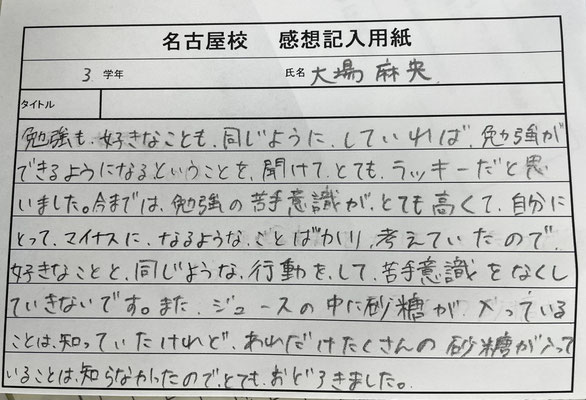 名古屋校 感想記入用紙
3 学年 氏名 大場 麻央
タイトル
勉強も、好きなことも、同じように、していれば、勉強が
できるようになるということを、聞けて、とても、ラッキーだと思
いました。今までは、勉強の苦手意識が、とても高くて、自分に
とって、マイナスに、なるような、ことばかり、考えていたので、
好きなことと、同じような、行動を、して、苦手意識をなくし
ていきないです。また、ジュースの中に砂糖が、入っている
ことは、知っていたけれど、あれだけたくさんの砂糖が入って
いることは、知らなかったので、とても、おどろきました。